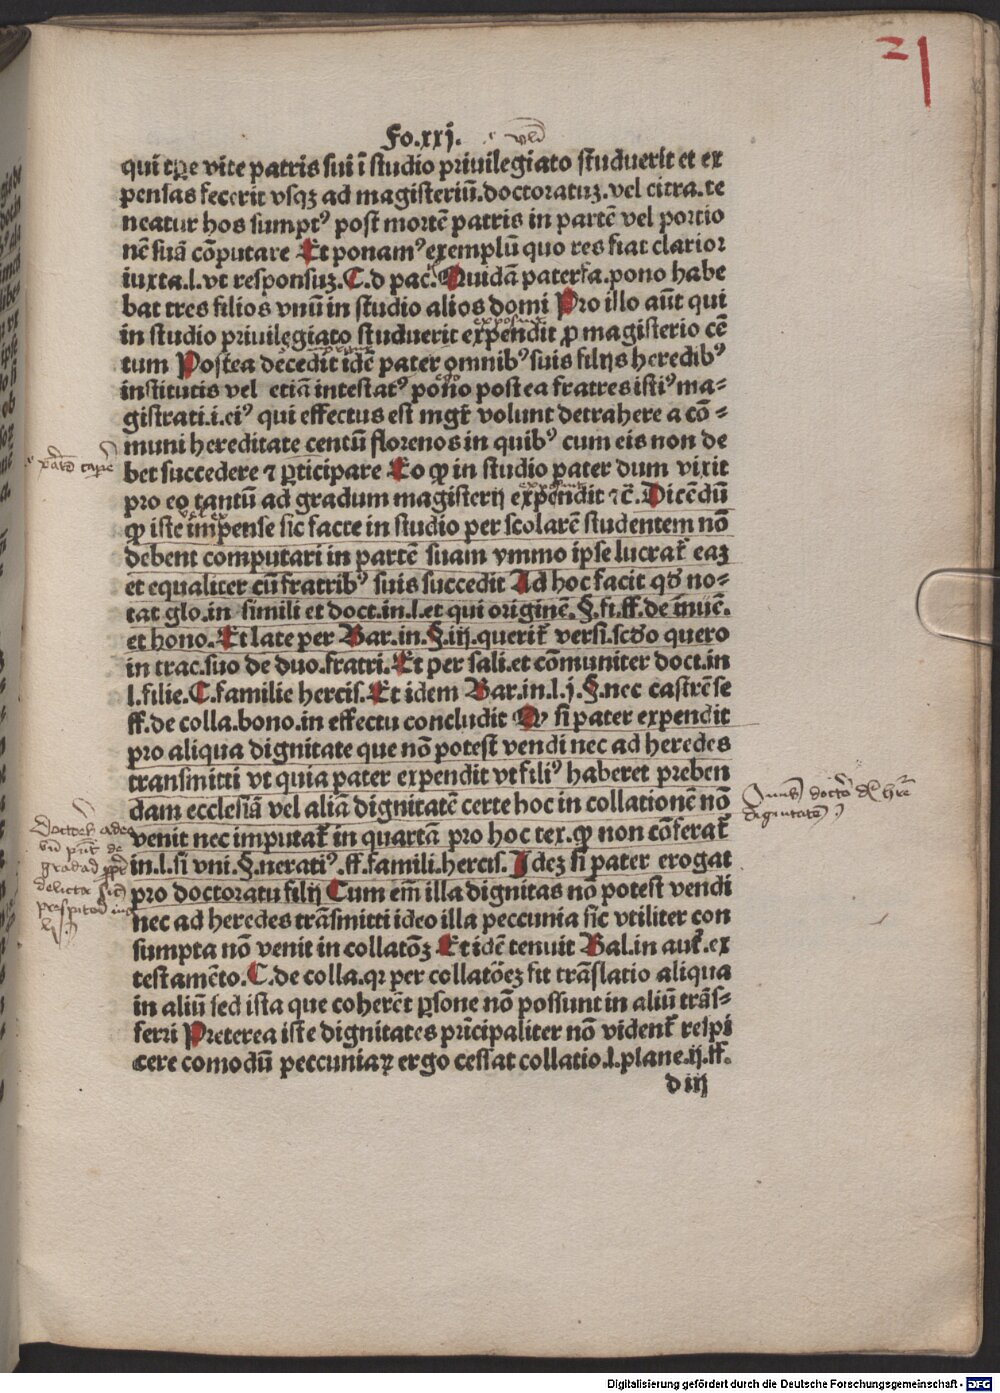 21
Fo.xxj.
qui tꝑe vite patris sui ĩ studio priuilegiato studuerit et ex
pensas fecerit vsqꝫ ad magisteriũ.doctoratuꝫ.vel citra.te
neatur hos sumptꝰ post mortẽ patris in partẽ vel portio
nẽ suã cõputare Et ponamꝰ exemplũ quo res fiat clarior
iuxta.l.vt responsuꝫ.C.d pac. Quidã paterfa.pono habe
bat tres filios vnũ in studio alios domi Pro illo aũt qui
in studio priuilegiato studuerit expendit ꝓ magisterio cẽ
tum Postea decedit idẽ pater omnibꝰ suis filijs heredibꝰ
institutis vel etiã intestatꝰ poño postea fratres istiꝰ ma-
gistrati.i.eiꝰ qui effectus est mgr̃ volunt detrahere a cõ-
muni hereditate centũ florenos in quibꝰ cum eis non de
bet succedere ⁊ ꝑticipare Eo ꝙ in studio pater dum vixit
pro eo tantũ ad gradum magisterij expendit ⁊c̃. Dicẽdũ
ꝙ iste impense sic facte in studio per scolarẽ studentem nõ
debent computari in partẽ suam ymmo ipse lucrat̃ eaꝫ
et equaliter cũ fratribꝰ suis succedit Ad hoc facit qđ no-
tat glo.in simili et doct.in.l.et qui originẽ.§.fi.ff.de ĩnuẽ.
et hono. Et late per Bar.in.§.iij.querit̃ versi.scđo quero
in trac.suo de duo.fratri. Et per sali.et cõmuniter doct.in
l.filie.C.familie hercis. Et idem Bar.in.l.j.§.nec castrẽse
ff.de colla.bono.in effectu concludit Q si pater expendit
pro aliqua dignitate que nõ potest vendi nec ad heredes
transmitti vt quia pater expendit vt filiꝰ haberet preben
dam ecclesiã vel aliã dignitatẽ certe hoc in collationẽ nõ
venit nec imputat̃ in quartã pro hoc tex.ꝙ non cõferat̃
in.l.si vni.§.neratiꝰ.ff.famili.hercis. Ideꝫ si pater erogat
pro doctoratu filij Cum em̃ illa dignitas nõ potest vendi
nec ad heredes trãsmitti ideo illa peccunia sic vtiliter con
sumpta nõ venit in collatõꝫ Et idẽ tenuit Bal.in aut̃.ex
testamẽto.C.de colla.qꝛ per collatõeꝫ fit trãslatio aliqua
in aliũ sed ista que coherẽt ꝑsone nõ possunt in aliũ trãs-
ferri Preterea iste dignitates prĩcipaliter nõ vident̃ respi
cere comodũ peccuniaꝝ ergo cessat collatio.l.plane.ij.ff.
d iij
Digitalisierung gefördert durch die Deutsche Forschungsgemeinschaft - DFG